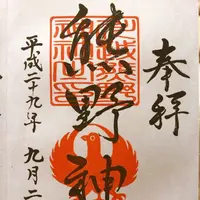 奉拝
熊野神
平成二十九年 九月二